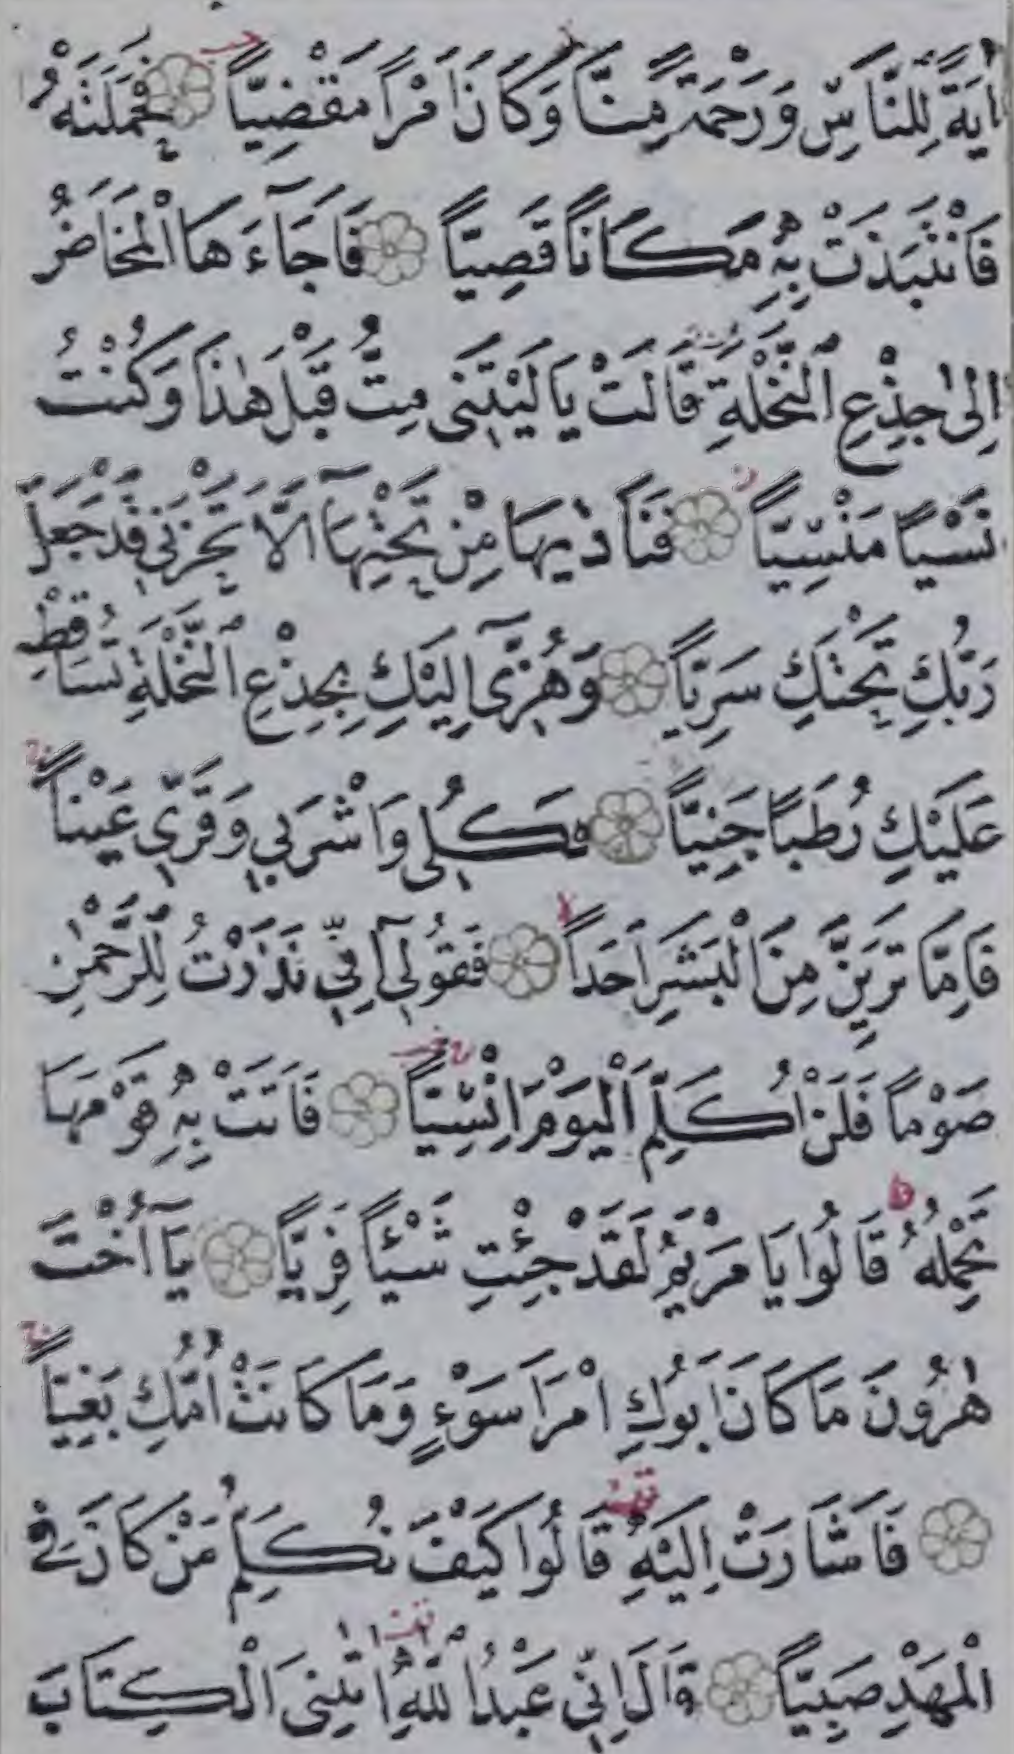 اٰيَةً لِلنَّاسِ وَرَحْمَةً مِنَّا وَكَانَ اَمْراً مَقْضِيّاً ۝ فَحَمَلَتْهُ
فَانْتَبَذَتْ بِهٖ مَكَاناً قَصِيّاً ۝ فَاَجَٓاءَهَا الْمَخَاضُ
اِلٰى جِذْعِ النَّخْلَةِ قَالَتْ يَا لَيْتَنٖى مِتُّ قَبْلَ هٰذَا وَكُنْتُ
نَسْياً مَنْسِيّاً ۝ فَنَادٰيهَا مِنْ تَحْتِهَٓا اَلَّا تَحْزَنٖى قَدْ جَعَلَ
رَبُّكِ تَحْتَكِ سَرِيّاً ۝ وَهُزّٖٓى اِلَيْكِ بِجِذْعِ النَّخْلَةِ تُسَاقِطْ
عَلَيْكِ رُطَباً جَنِيّاً ۝ فَكُلٖى وَاشْرَبٖى وَقَرّٖى عَيْناً
فَاِمَّا تَرَيِنَّ مِنَ الْبَشَرِ اَحَداً ۝ فَقُولٖٓى اِنّٖى نَذَرْتُ لِلرَّحْمٰنِ
صَوْماً فَلَنْ اُكَلِّمَ الْيَوْمَ اِنْسِيّاً ۝ فَاَتَتْ بِهٖ قَوْمَهَا
تَحْمِلُهُ قَالُوا يَا مَرْيَمُ لَقَدْ جِئْتِ شَيْـٔاً فَرِيّاً ۝ يَٓا اُخْتَ
هٰرُونَ مَا كَانَ اَبُوكِ امْرَاَ سَوْءٍ وَمَا كَانَتْ اُمُّكِ بَغِيّاً
۝ فَاَشَارَتْ اِلَيْهِ قَالُوا كَيْفَ نُكَلِّمُ مَنْ كَانَ فِي
الْمَهْدِ صَبِيّاً ۝ قَالَ اِنّٖى عَبْدُ اللّٰهِ اٰتٰينِىَ الْكِتَابَ